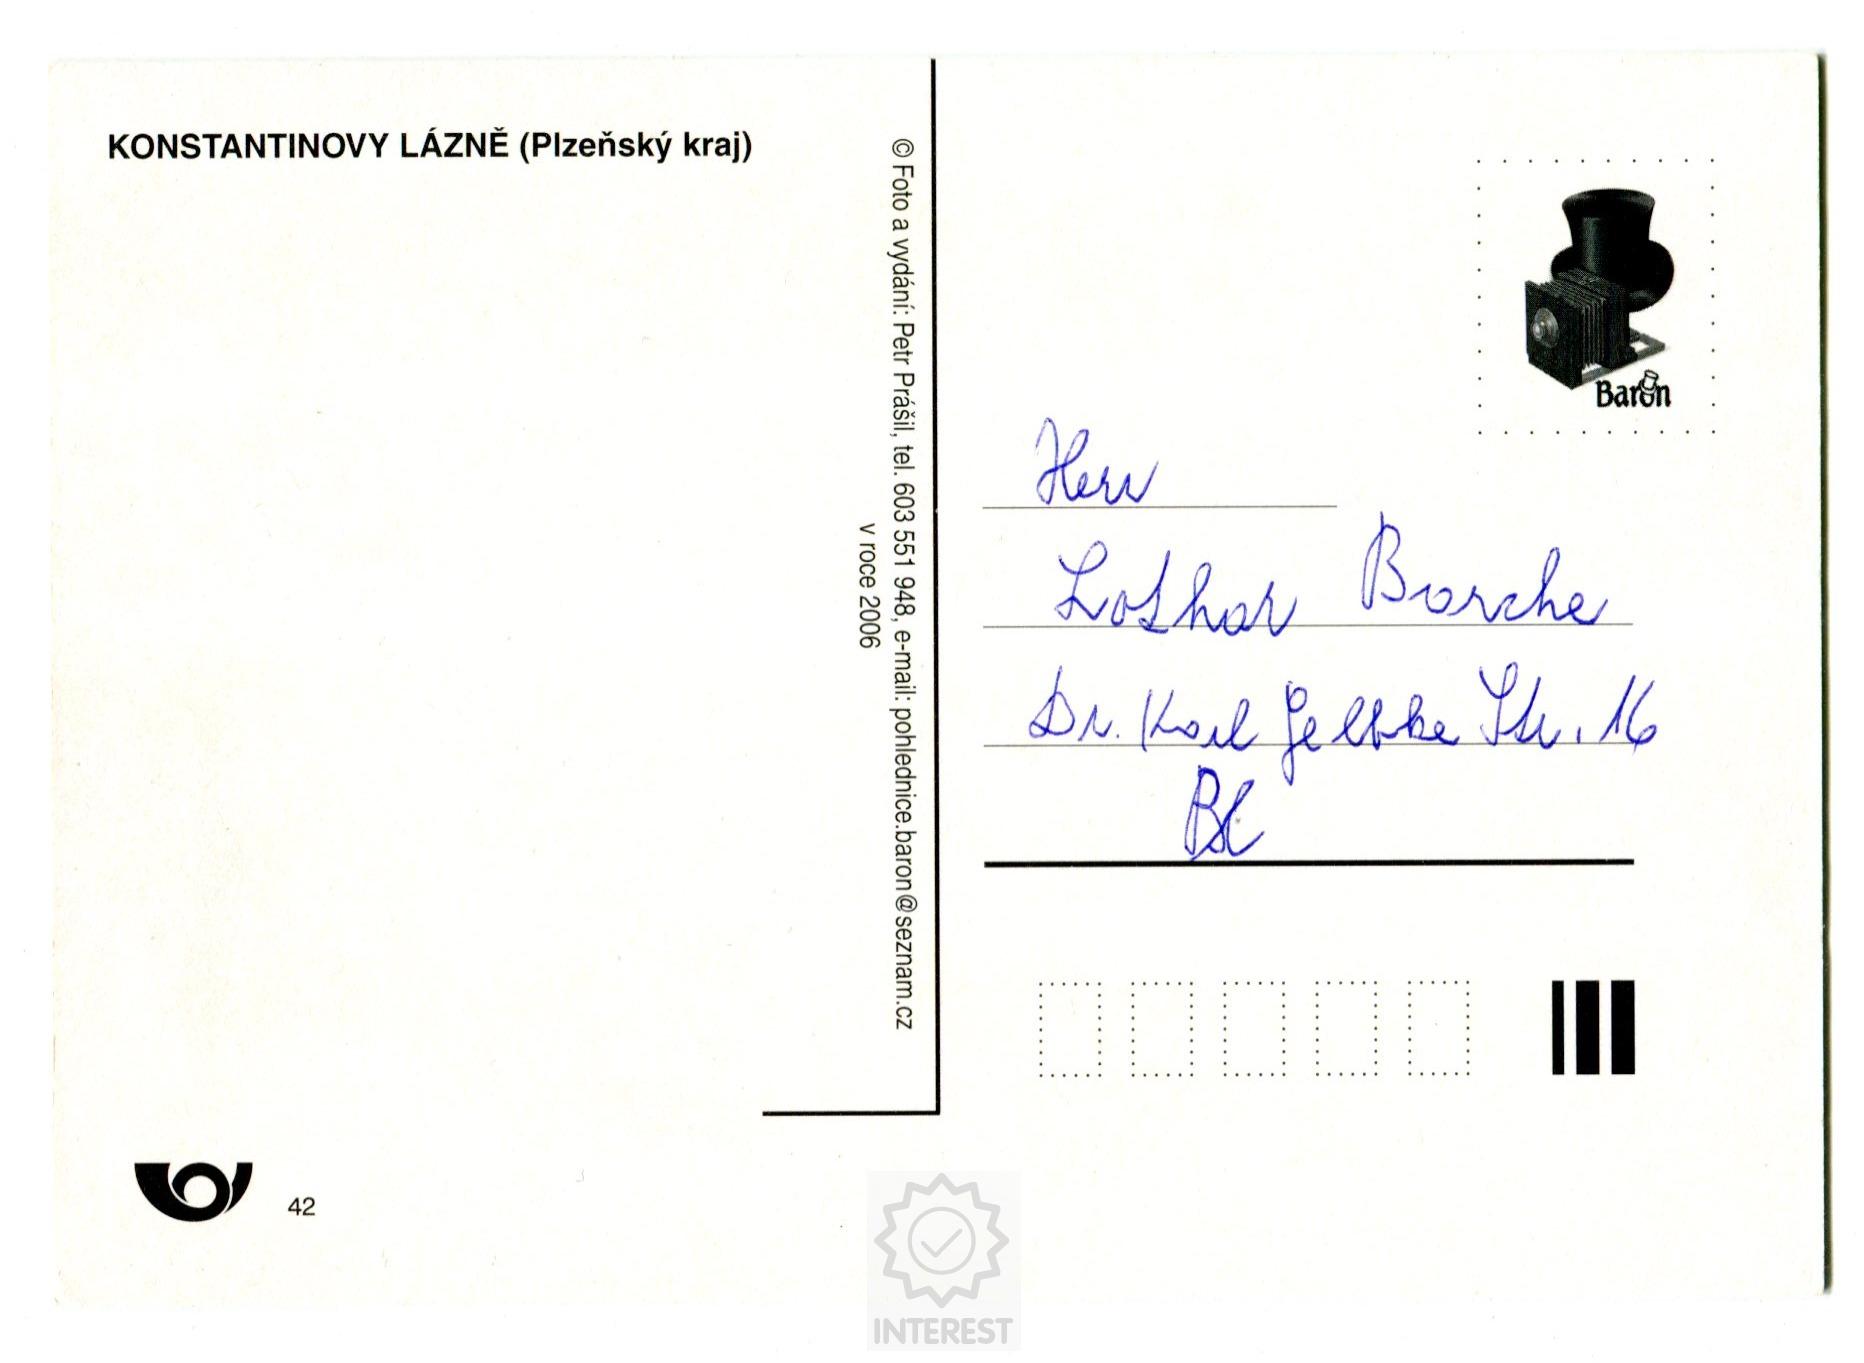 KONSTANTINOVY LÁZNĚ (Plzeňský kraj)
© Foto a vydání: Petr Prášil, tel. 603 551 948, e-mail: pohlednice.baron@seznam.cz
v roce 2006
Baron
Herr
Lothar Borche
Dr. Karl Gelbke Str. 16
42
INTEREST